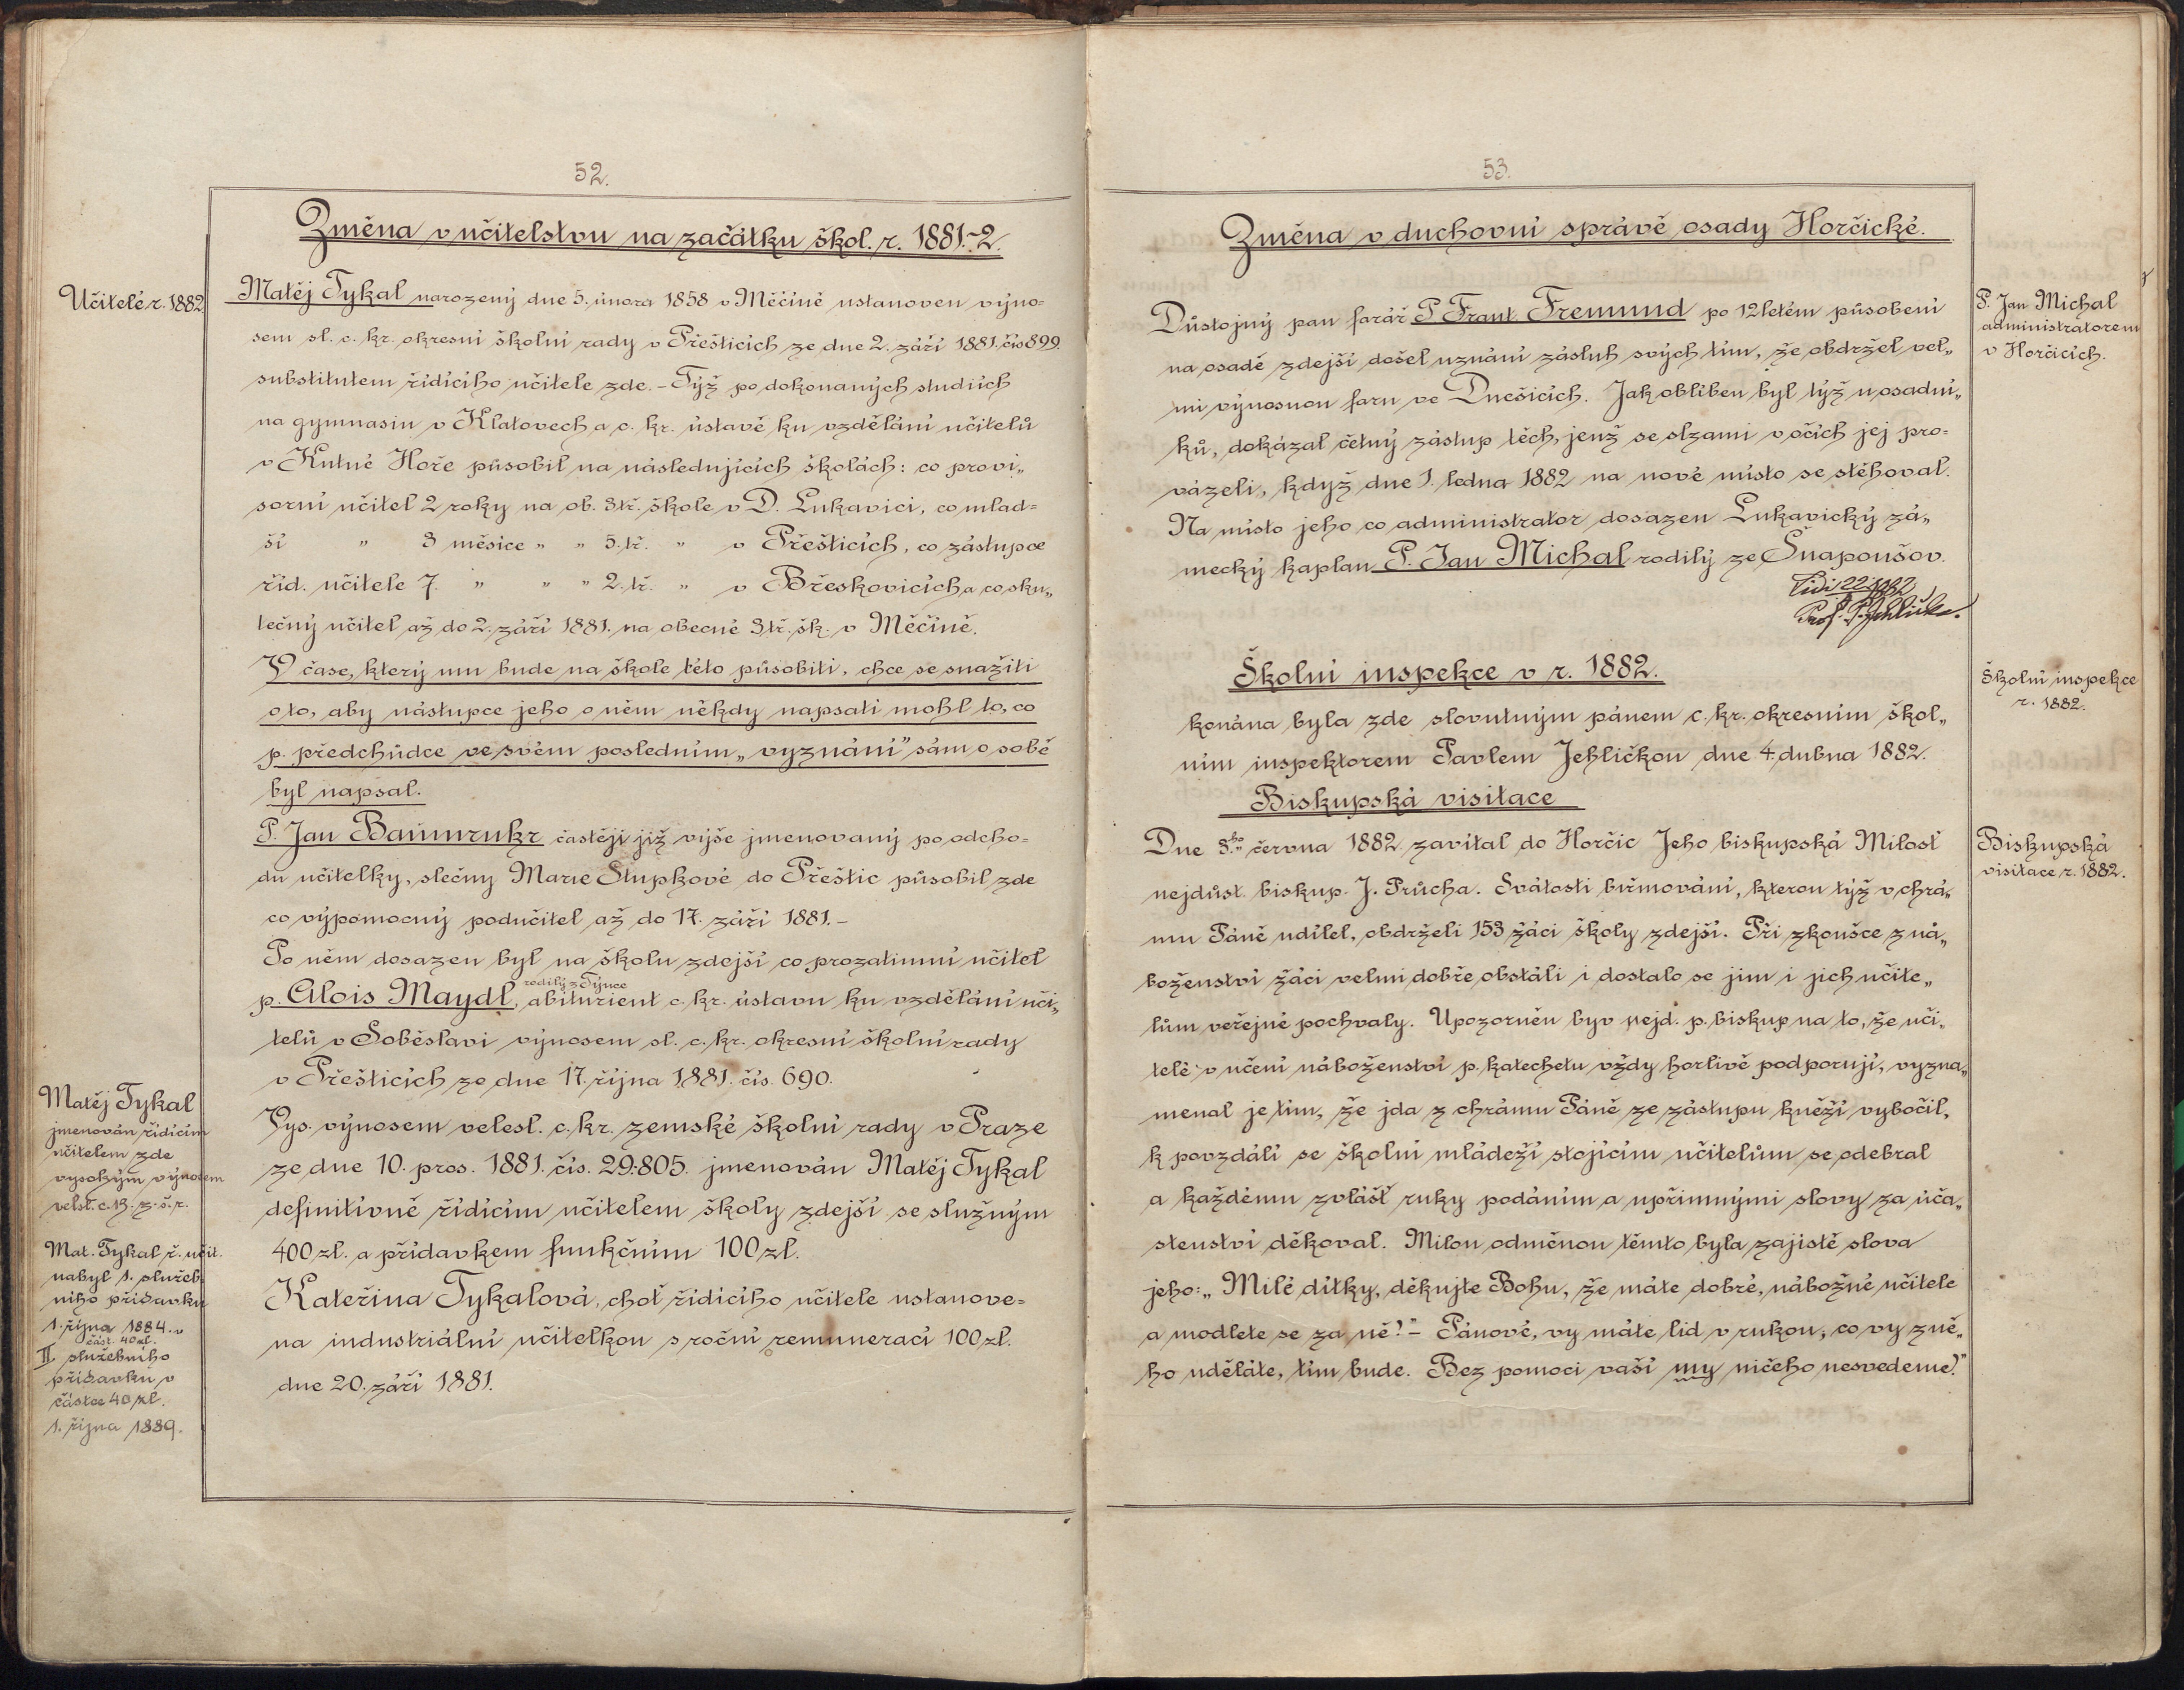 52.
Změna v učitelstvu na začátku škol. r. 1881.-2.
Učitelé r. 1882
Matěj Tykal narozený dne 5. února 1858 v Měčíně ustanoven výno=
sem sl. c. kr. okresní školní rady v Přešticích ze dne 2. září 1881. čís 899.
substitutem řídícího učitele zde. - Týž po dokonaných studiích
na gymnasiu v Klatovech a c. kr. ústavě ku vzdělání učitelů
v Kutné Hoře působil na následujících školách: co provi„
sorní učitel 2 roky na ob. 3tř. škole v D. Lukavici, co mlad=
ší " 3 měsíce " " 5. tř. " v Přešticích, co zástupce
říd. učitele 7. " " " 2. tř. " v Břeskovicích a co sku„
tečný učitel až do 2. září 1881. na obecné 3tř. šk. v Měčíně.
V čase, který mu bude na škole této působiti, chce se snažiti
o to, aby nástupce jeho o něm někdy napsati mohl to, co
p. předchůdce ve svém posledním „vyznání" sám o sobě
byl napsal.
P. Jan Baumrukr častěji již výše jmenovaný po odcho=
du učitelky, slečny Marie Stupkové do Přeštic působil zde
co výpomocný podučitel až do 17. září 1881. -
Po něm dosazen byl na školu zdejší co prozatimní učitel
rodilý z Týnce
p. Alois Maydl, abiturient c. kr. ústavu ku vzdělání uči„
telů v Soběslavi výnosem sl. c. kr. okresní školní rady
v Přešticích ze dne 17. října 1881. čís. 690.
Matěj Tykal
jmenován řídícím
učitelem zde
vysokým výnosem
velsl. c. k. z. š. r.
Vys. výnosem velesl. c. kr. zemské školní rady v Praze
ze dne 10. pros. 1881. čís. 29.805. jmenován Matěj Tykal
definitivně řídícím učitelem školy zdejší se služným
400 zl. a přídavkem funkčním 100 zl.
Mat. Tykal ř. učit.
nabyl 1. služeb
ního přídavku
1. října 1884. v
část. 40 zl.
II služebního
přídavku v
částce 40 zl.
1. října 1889.
Kateřina Tykalová, choť řídícího učitele ustanove=
na industriální učitelkou s roční remunerací 100 zl.
dne 20. září 1881.
53.
Změna v duchovní správě osady Horčické.
P. Jan Michal
administrátorem
v Horčicích.
Důstojný pan farář P Frant. Fremund po 12letém působení
na osadě zdejší došel uznání zásluh svých tím, že obdržel vel„
mi výnosnou faru ve Dnešicích. Jak oblíben byl týž u osadní„
ků, dokázal četný zástup těch, jenž se slzami v očích jej pro=
vázeli, když dne 1. ledna 1882 na nové místo se stěhoval.
Na místo jeho co administrator dosazen Lukavický zá„
mecký kaplan P. Jan Michal rodilý ze Šnapoušov.
Školní inspekce v r. 1882.
Školní inspekce
r. 1882.
konána byla zde slovutným pánem c. kr. okresním škol„
ním inspektorem Pavlem Jehličkou dne 4. dubna 1882.
Biskupská visitace
Biskupská
visitace r. 1882.
Dne 3.ho června 1882. zavítal do Horčic Jeho biskupská Milosť
nejdůst. biskup. J. Průcha. Svátosti biřmování, kterou týž v chrá„
mu Páně udílel, obdrželi 153 žáci školy zdejší. Při zkoušce z ná„
boženství žáci velmi dobře obstáli i dostalo se jim i jich učite„
lům veřejné pochvaly. Upozorněn byv nejd. p. biskup na to, že uči„
telé v učení náboženství p. katechetu vždy horlivě podporují, vyzna„
menal je tím, že jda z chrámu Páně ze zástupu kněží vybočil,
k povzdálí se školní mládeží stojícím učitelům se odebral
a každému zvlášť ruky podáním a upřimnými slovy za úča„
stenství děkoval. Milou odměnou těmto byla zajistě slova
jeho: „Milé dítky, děkujte Bohu, že máte dobré, nábožné učitele
a modlete se za ně!" - Pánové, vy máte lid v rukou, co vy z ně„
ho uděláte, tím bude. Bez pomoci vaší my ničeho nesvedeme!"